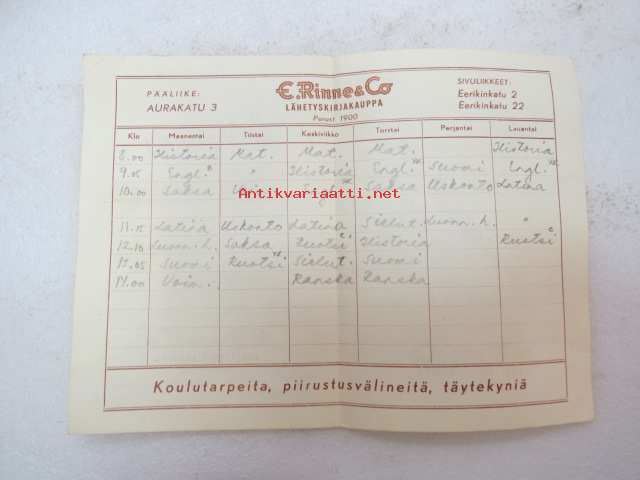 PÄÄLIIKE:
AURAKATU 3
E. Rinne & Co
LÄHETYSKIRJAKAUPPA
Perust. 1900
SIVULIIKKEET:
Eerikinkatu 2
Eerikinkatu 22
Klo Maanantai Tiistai Keskiviikko Torstai Perjantai Lauantai
8.00 Historia Mat. Mat. Mat. Historia
9.05 Engl. " Historia Engl. Suomi Engl.
10.00 Saksa Saksa Uskonto Latina
Antikvariaatti.net
11.15 Latina Uskonto Latina Sielut. Luonn.h. "
12.10 Luonn.h. Saksa Ruotsi Historia Ruotsi
13.05 Suomi Ruotsi Sielut. Suomi
14.00 Voim. Ranska Ranska
Koulutarpeita, piirustusvälineitä, täytekyniä